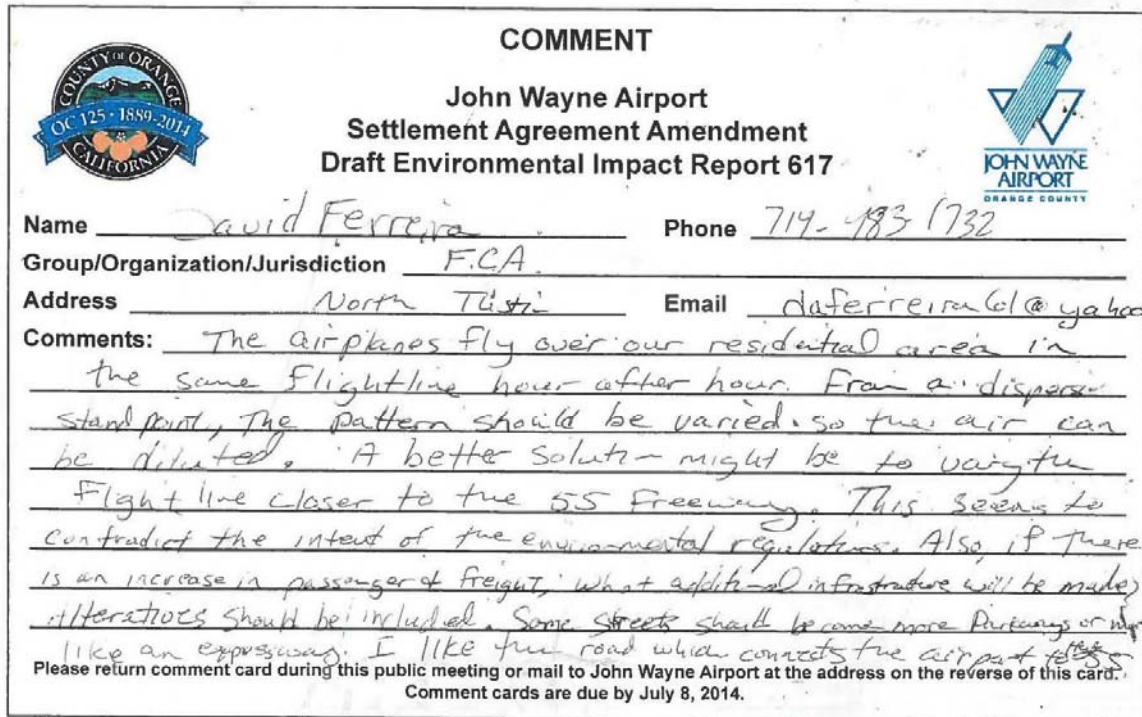 COMMENT
COUNTY OF ORANGE
OC 125 • 1889-2014
CALIFORNIA
John Wayne Airport
Settlement Agreement Amendment
Draft Environmental Impact Report 617
JOHN WAYNE
AIRPORT
ORANGE COUNTY
Name David Ferreira Phone 714-483-1732
Group/Organization/Jurisdiction F.C.A.
Address North Tustin Email daferreira61@yahoo
Comments: The airplanes fly over our residential area in
the same flightline hour after hour. From a
stand point, The pattern should be varied so the air can
be diluted. A better Solution might be to vary the
Flight line closer to the 55 Freeway. This seems to
contradict the intent of the environmental regulations. Also, if there
is an increase in passenger & freight, what additional infrastructure will be made?
Alteratives should be included. Some streets should become more Parkways or
like an expressway. I like the road which connects the airport to the 55
Please return comment card during this public meeting or mail to John Wayne Airport at the address on the reverse of this card.
Comment cards are due by July 8, 2014.